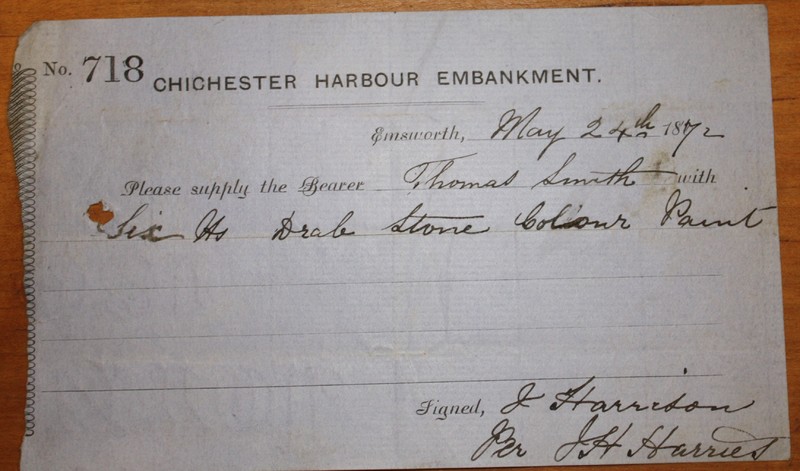 No. 718 CHICHESTER HARBOUR EMBANKMENT.
Emsworth, May 24th 1872
Please supply the Bearer Thomas Smith with
Six lbs Drab Stone Colour Paint
Signed, J Harrison
Per J H Harries